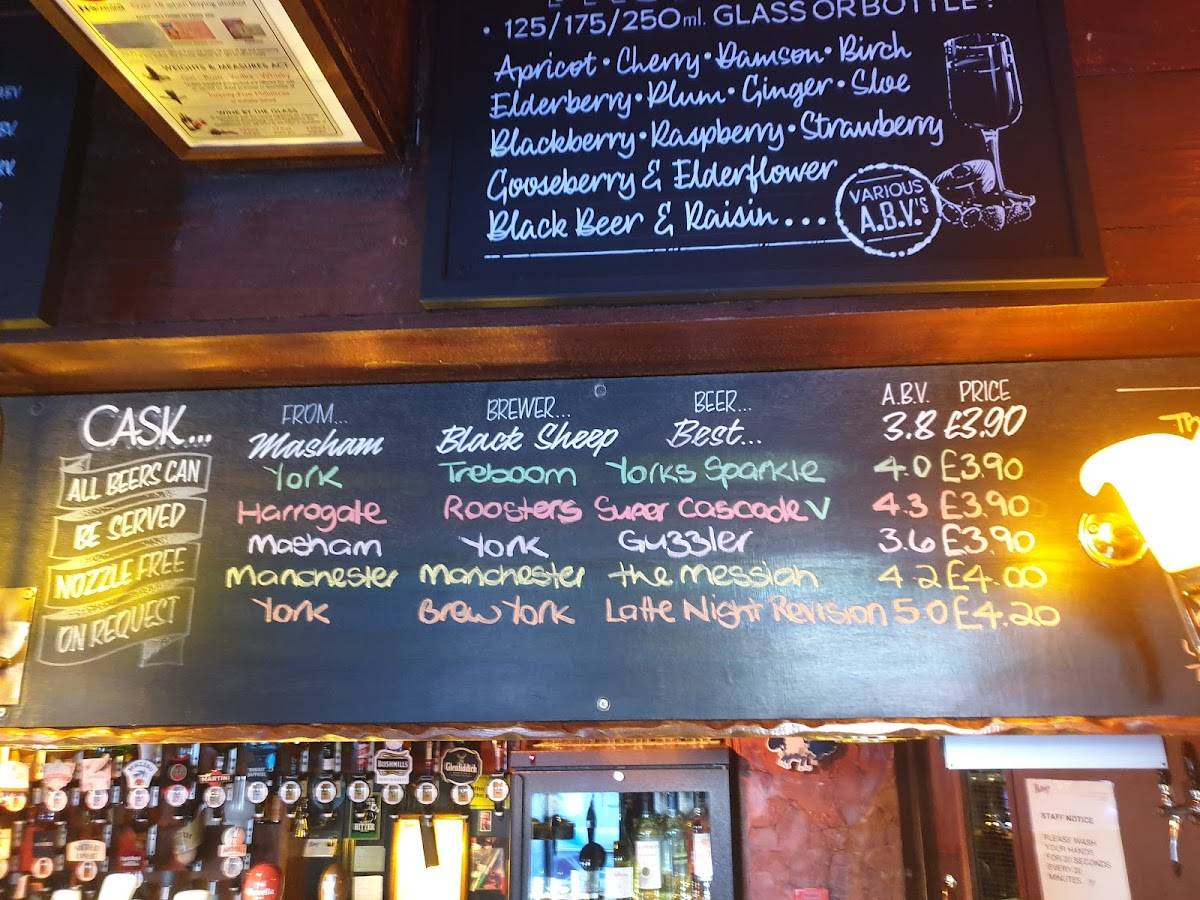 WEIGHTS & MEASURES ACT
WINE BY THE GLASS
• 125/175/250ml. GLASS OR BOTTLE
Apricot • Cherry • Damson • Birch
Elderberry • Plum • Ginger • Sloe
Blackberry • Raspberry • Strawberry
Gooseberry & Elderflower
Black Beer & Raisin...
VARIOUS
A.B.V.'s
CASK...
ALL BEERS CAN
BE SERVED
NOZZLE FREE
ON REQUEST
FROM... BREWER... BEER... A.B.V. PRICE
Masham Black Sheep Best... 3.8 £3.90
York Treboom Yorks Sparkle 4.0 £3.90
Harrogate Roosters Super Cascade V 4.3 £3.90
Masham York Guzzler 3.6 £3.90
Manchester Manchester the Messiah 4.2 £4.00
York Brew York Latte Night Revision 5.0 £4.20
BUSHMILLS
Glenfiddich
MARTINI
BITTER
STAFF NOTICE
PLEASE WASH
YOUR HANDS
FOR 20 SECONDS
EVERY 30
MINUTES..!!!